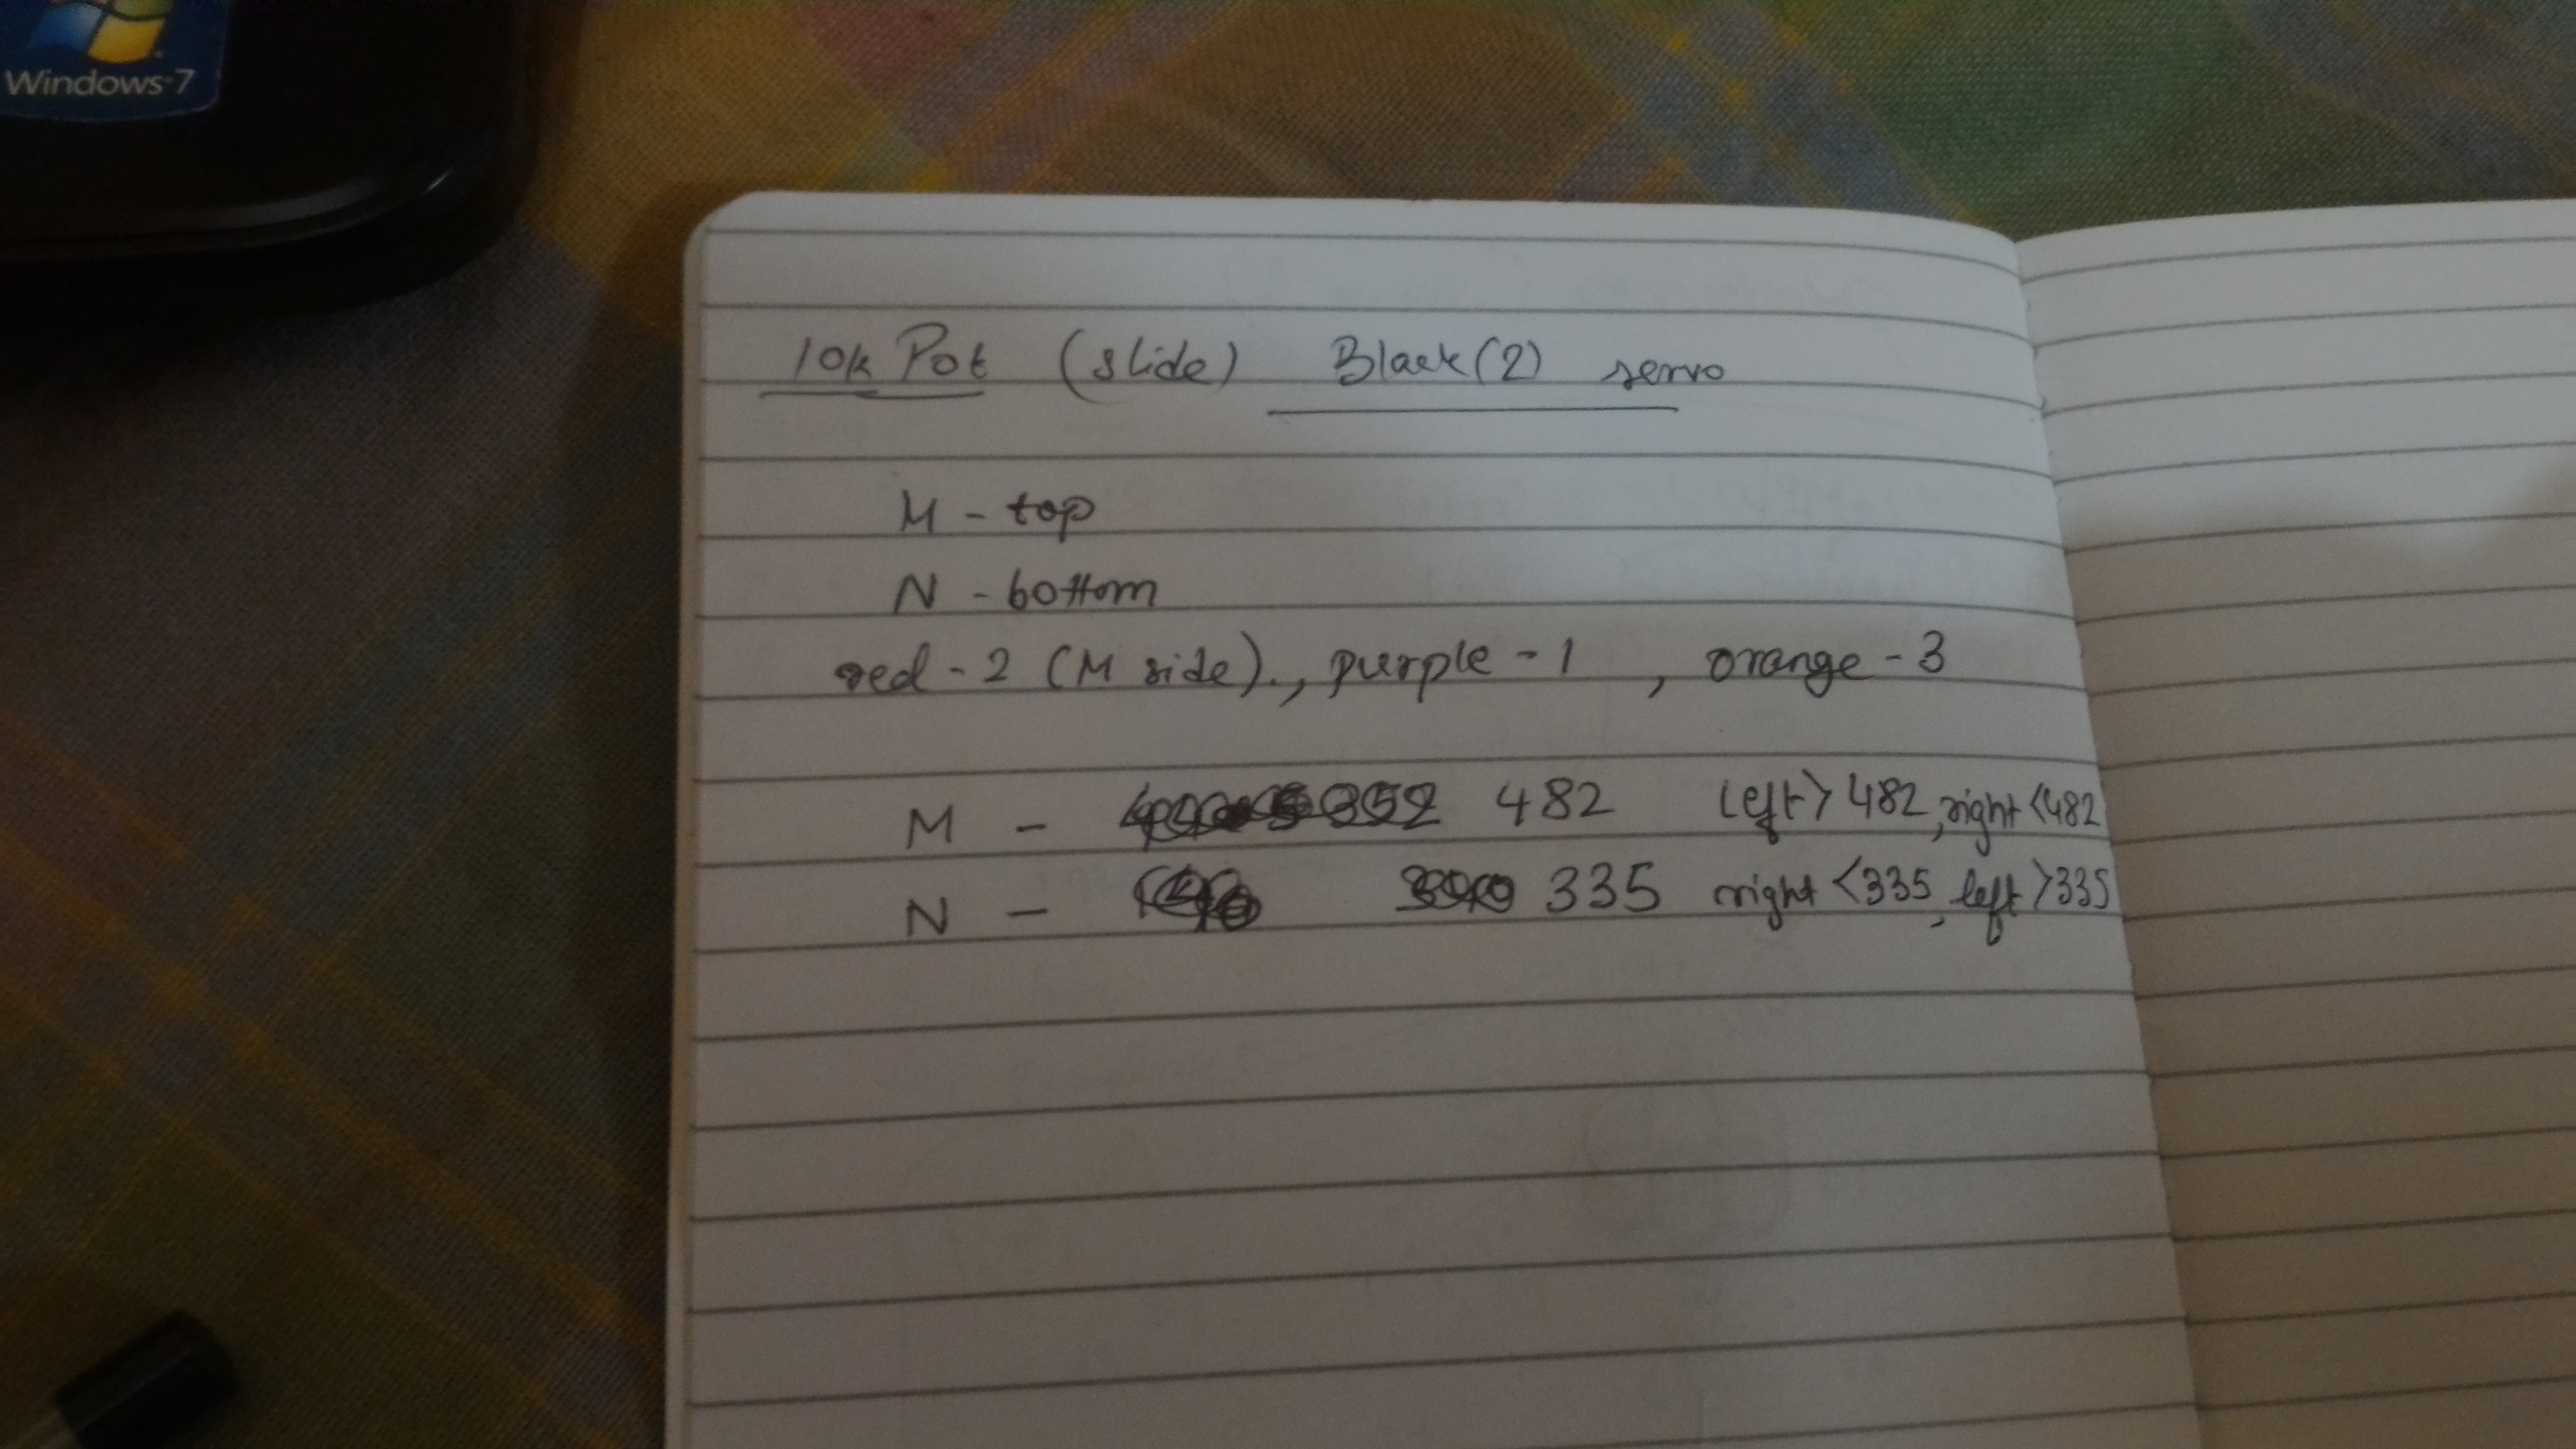 Windows 7
10k Pot (slide) Black(2) servo
M - top
N - bottom
red - 2 (M side)., purple - 1 , orange - 3
M - 482 left > 482, right < 482
N - 335 right < 335, left > 335